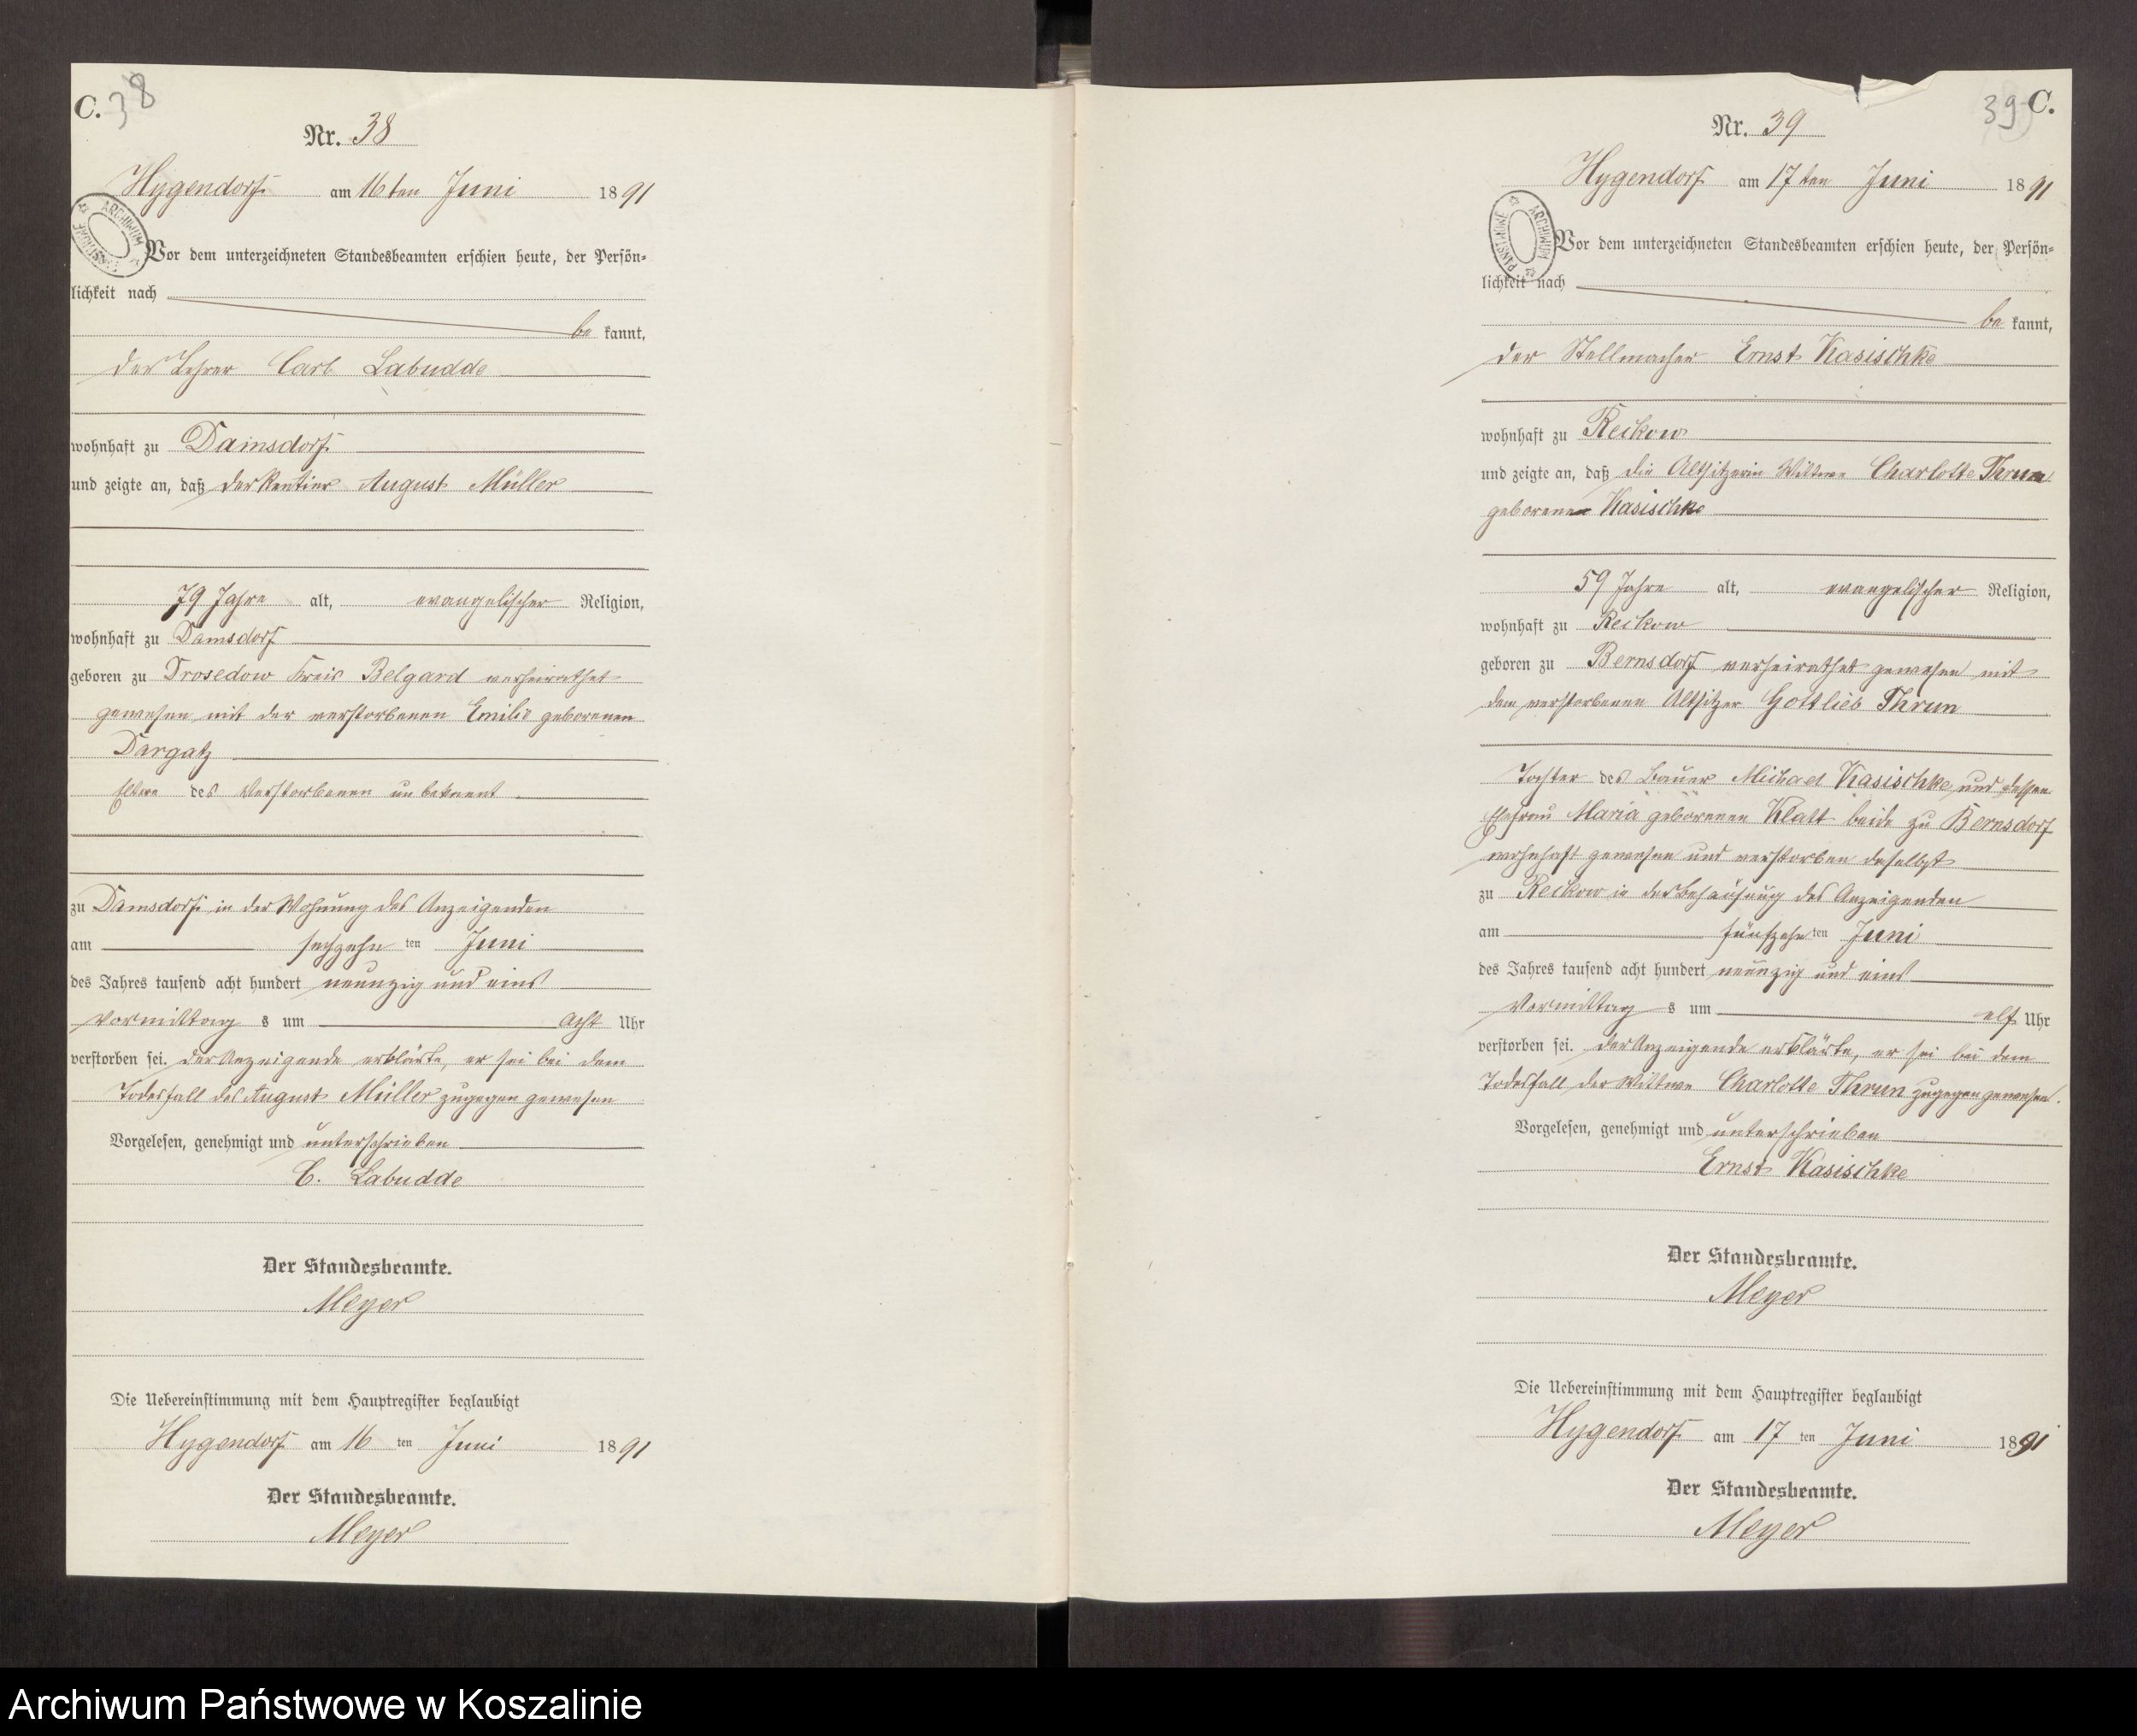 C. 38
Nr. 38
Hygendorf am 16ten Juni 1891
Vor dem unterzeichneten Standesbeamten erschien heute, der Persön-
lichkeit nach
bekannt,
der Lehrer Carl Labudde
wohnhaft zu Damsdorf
und zeigte an, daß der Rentier August Müller
79 Jahre alt, evangelischer Religion,
wohnhaft zu Damsdorf
geboren zu Drosedow Kreis Belgard verheirathet
gewesen mit der verstorbenen Emilie geborenen
Dargatz
Eltern des Verstorbenen unbekannt
zu Damsdorf in der Wohnung des Anzeigenden
am sechzehn ten Juni
des Jahres tausend acht hundert neunzig und eins
Vormittag s um acht Uhr
verstorben sei. der Anzeigende erklärte, er sei bei dem
Todesfall des August Müller zugegen gewesen
Vorgelesen, genehmigt und unterschrieben
C. Labudde
Der Standesbeamte.
Meyer
Die Uebereinstimmung mit dem Hauptregister beglaubigt
Hygendorf am 16 ten Juni 1891
Der Standesbeamte.
Meyer
ARCHIWUM PAŃSTWOWE
39 C.
Nr. 39
Hygendorf am 17ten Juni 1891
Vor dem unterzeichneten Standesbeamten erschien heute, der Persön-
lichkeit nach
bekannt,
der Stellmacher Ernst Kasischke
wohnhaft zu Reckow
und zeigte an, daß die Altsitzerin Wittwe Charlotte Thrun
geborene Kasischke
59 Jahre alt, evangelischer Religion,
wohnhaft zu Reckow
geboren zu Bernsdorf verheirathet gewesen mit
dem verstorbenen Altsitzer Gottlieb Thrun
Tochter des Bauer Michael Kasischke und dessen
Ehefrau Maria geborenen Klatt beide zu Bernsdorf
wohnhaft gewesen und verstorben daselbst
zu Reckow in der Behausung des Anzeigenden
am fünfzehn ten Juni
des Jahres tausend acht hundert neunzig und eins
Vormittag s um elf Uhr
verstorben sei. der Anzeigende erklärte, er sei bei dem
Todesfall der Wittwe Charlotte Thrun zugegen gewesen.
Vorgelesen, genehmigt und unterschrieben
Ernst Kasischke
Der Standesbeamte.
Meyer
Die Uebereinstimmung mit dem Hauptregister beglaubigt
Hygendorf am 17 ten Juni 1891
Der Standesbeamte.
Meyer
ARCHIWUM PAŃSTWOWE
Archiwum Państwowe w Koszalinie